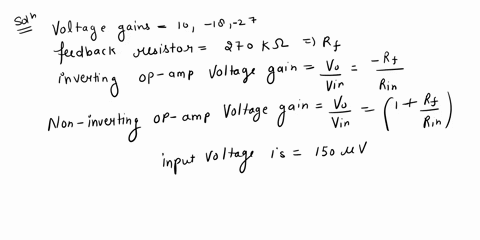 Solⁿ Voltage gains = 10, -18, -27
feedback resistor = 270 kΩ => Rf
inverting op-amp voltage gain = Vo/Vin = -Rf/Rin
Non-inverting op-amp Voltage gain = Vo/Vin = (1 + Rf/Rin)
input voltage is = 150 μV